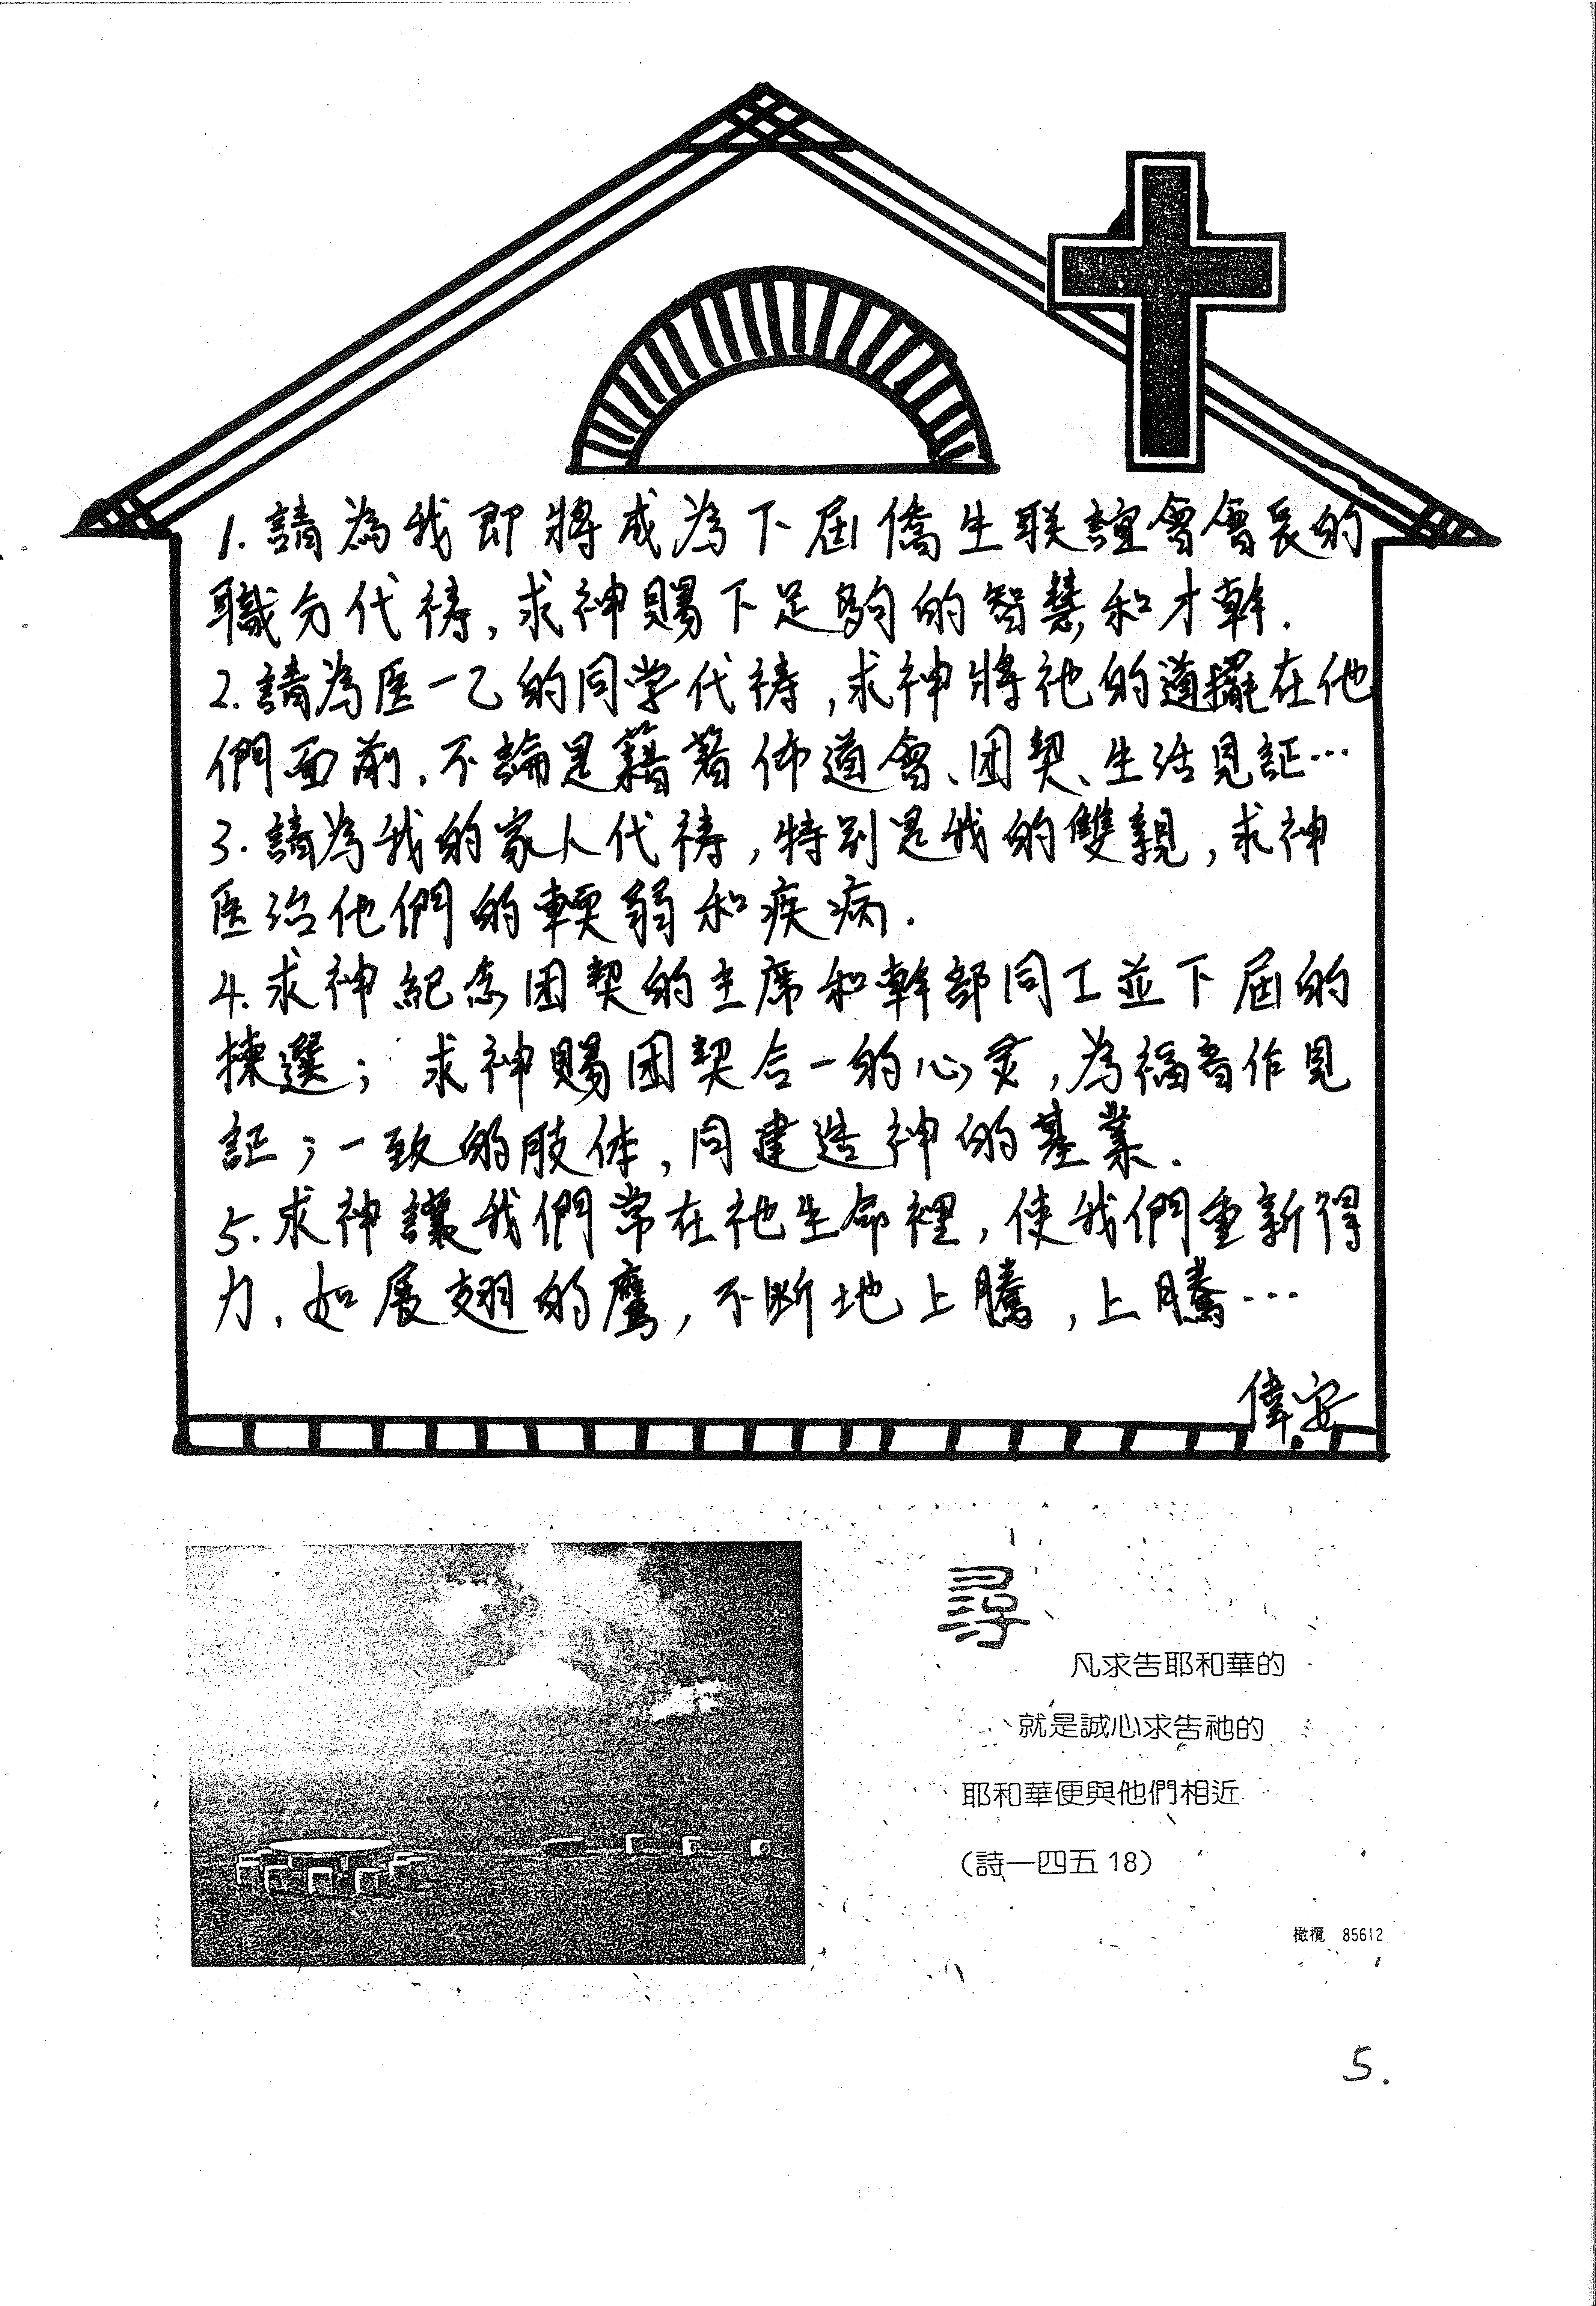 1. 請為我即將成為下屆僑生联誼會會長的
職分代祷, 求神賜下足夠的智慧和才幹.
2. 請為医一乙的同学代祷, 求神將祂的道擺在他
們面前. 不論是藉著佈道會、团契、生活見証…
3. 請為我的家人代祷, 特別是我的雙親, 求神
医治他們的軟弱和疾病.
4. 求神紀念团契的主席和幹部同工並下屆的
揀選; 求神賜团契合一的心灵, 為福音作見
証; 一致的肢体, 同建造神的基業.
5. 求神讓我們常在祂生命裡, 使我們重新得
力, 如展翅的鹰, 不断地上騰, 上騰…
偉安
尋
凡求告耶和華的
就是誠心求告祂的
耶和華便與他們相近
(詩一四五 18)
橄欖 85612
5.